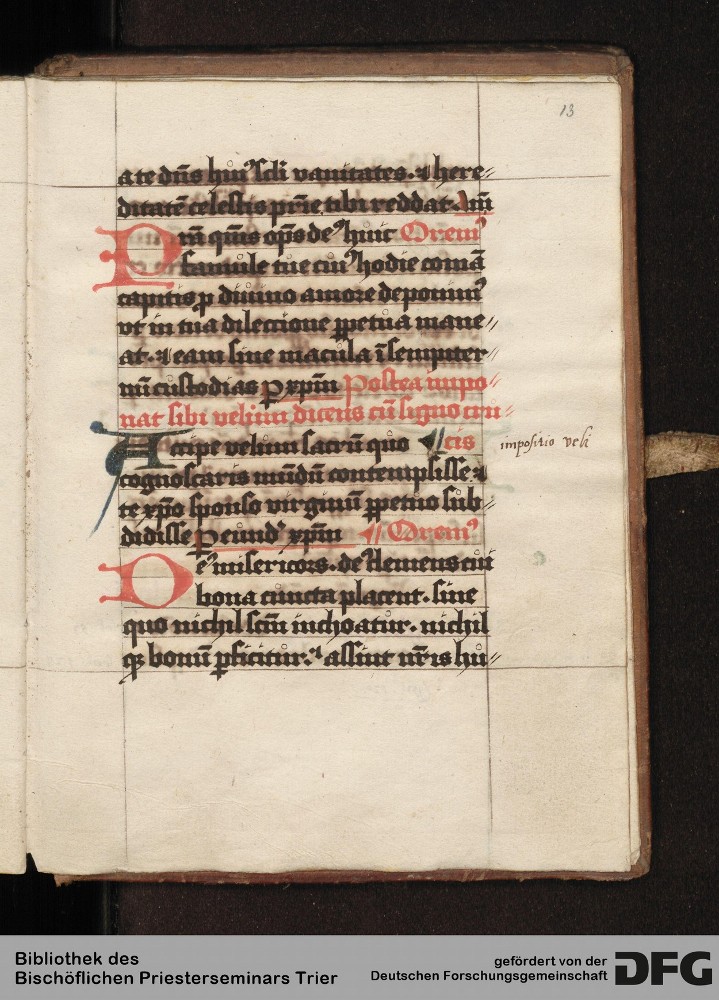 13
a te dn̄s huiꝰ sc̄li vanitates. ⁊ here⸗
ditatē celestis pr̄ie tibi reddat. Am̄
Prā qm̄s op̄s deꝰ huic Oremꝰ
famule tue cuiꝰ hodie comā
capitis ꝓ diuino amore deponimꝰ
vt in tua dileccione ꝑpetua mane⸗
at. ⁊ eam sine macula ī sempiter⸗
nū custodias ꝑ xp̄m Postea impo⸗
nat sibi velum dicens cū signo cru⸗
Accipe velum sacrū quo cis
impositio veli
cognoscaris mūdū contempsisse ⁊
te xp̄o sponso virginū ꝑpetuo sub⸗
didisse ꝑ eund' xp̄m Oremꝰ
Deꝰ misericors. deꝰ clemens cui
bona cuncta placent. sine
quo nichil sc̄m inchoatur. nichil
qꝫ bonū ꝑficitur. ⁊ assint nr̄is hu⸗
Bibliothek des
Bischöflichen Priesterseminars Trier
gefördert von der
Deutschen Forschungsgemeinschaft DFG